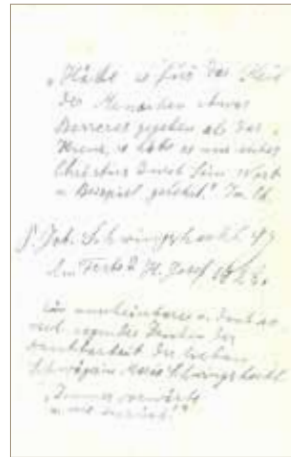 „Hätte es für das Heil
der Menschen etwas
Besseres gegeben als das
Kreuz, so hätte es uns unser
Christus durch Sein Wort
u Beispiel gelehrt."
P. Joh. Schwingshackl SJ
Am Feste d. Hl. Josef 1928.
Ein unscheinbares u. doch so
viel sagendes Zeichen der
Dankbarkeit der lieben
Schwägerin Maria Schwingshackl
„Immer vorwärts
u. nie zurück!"